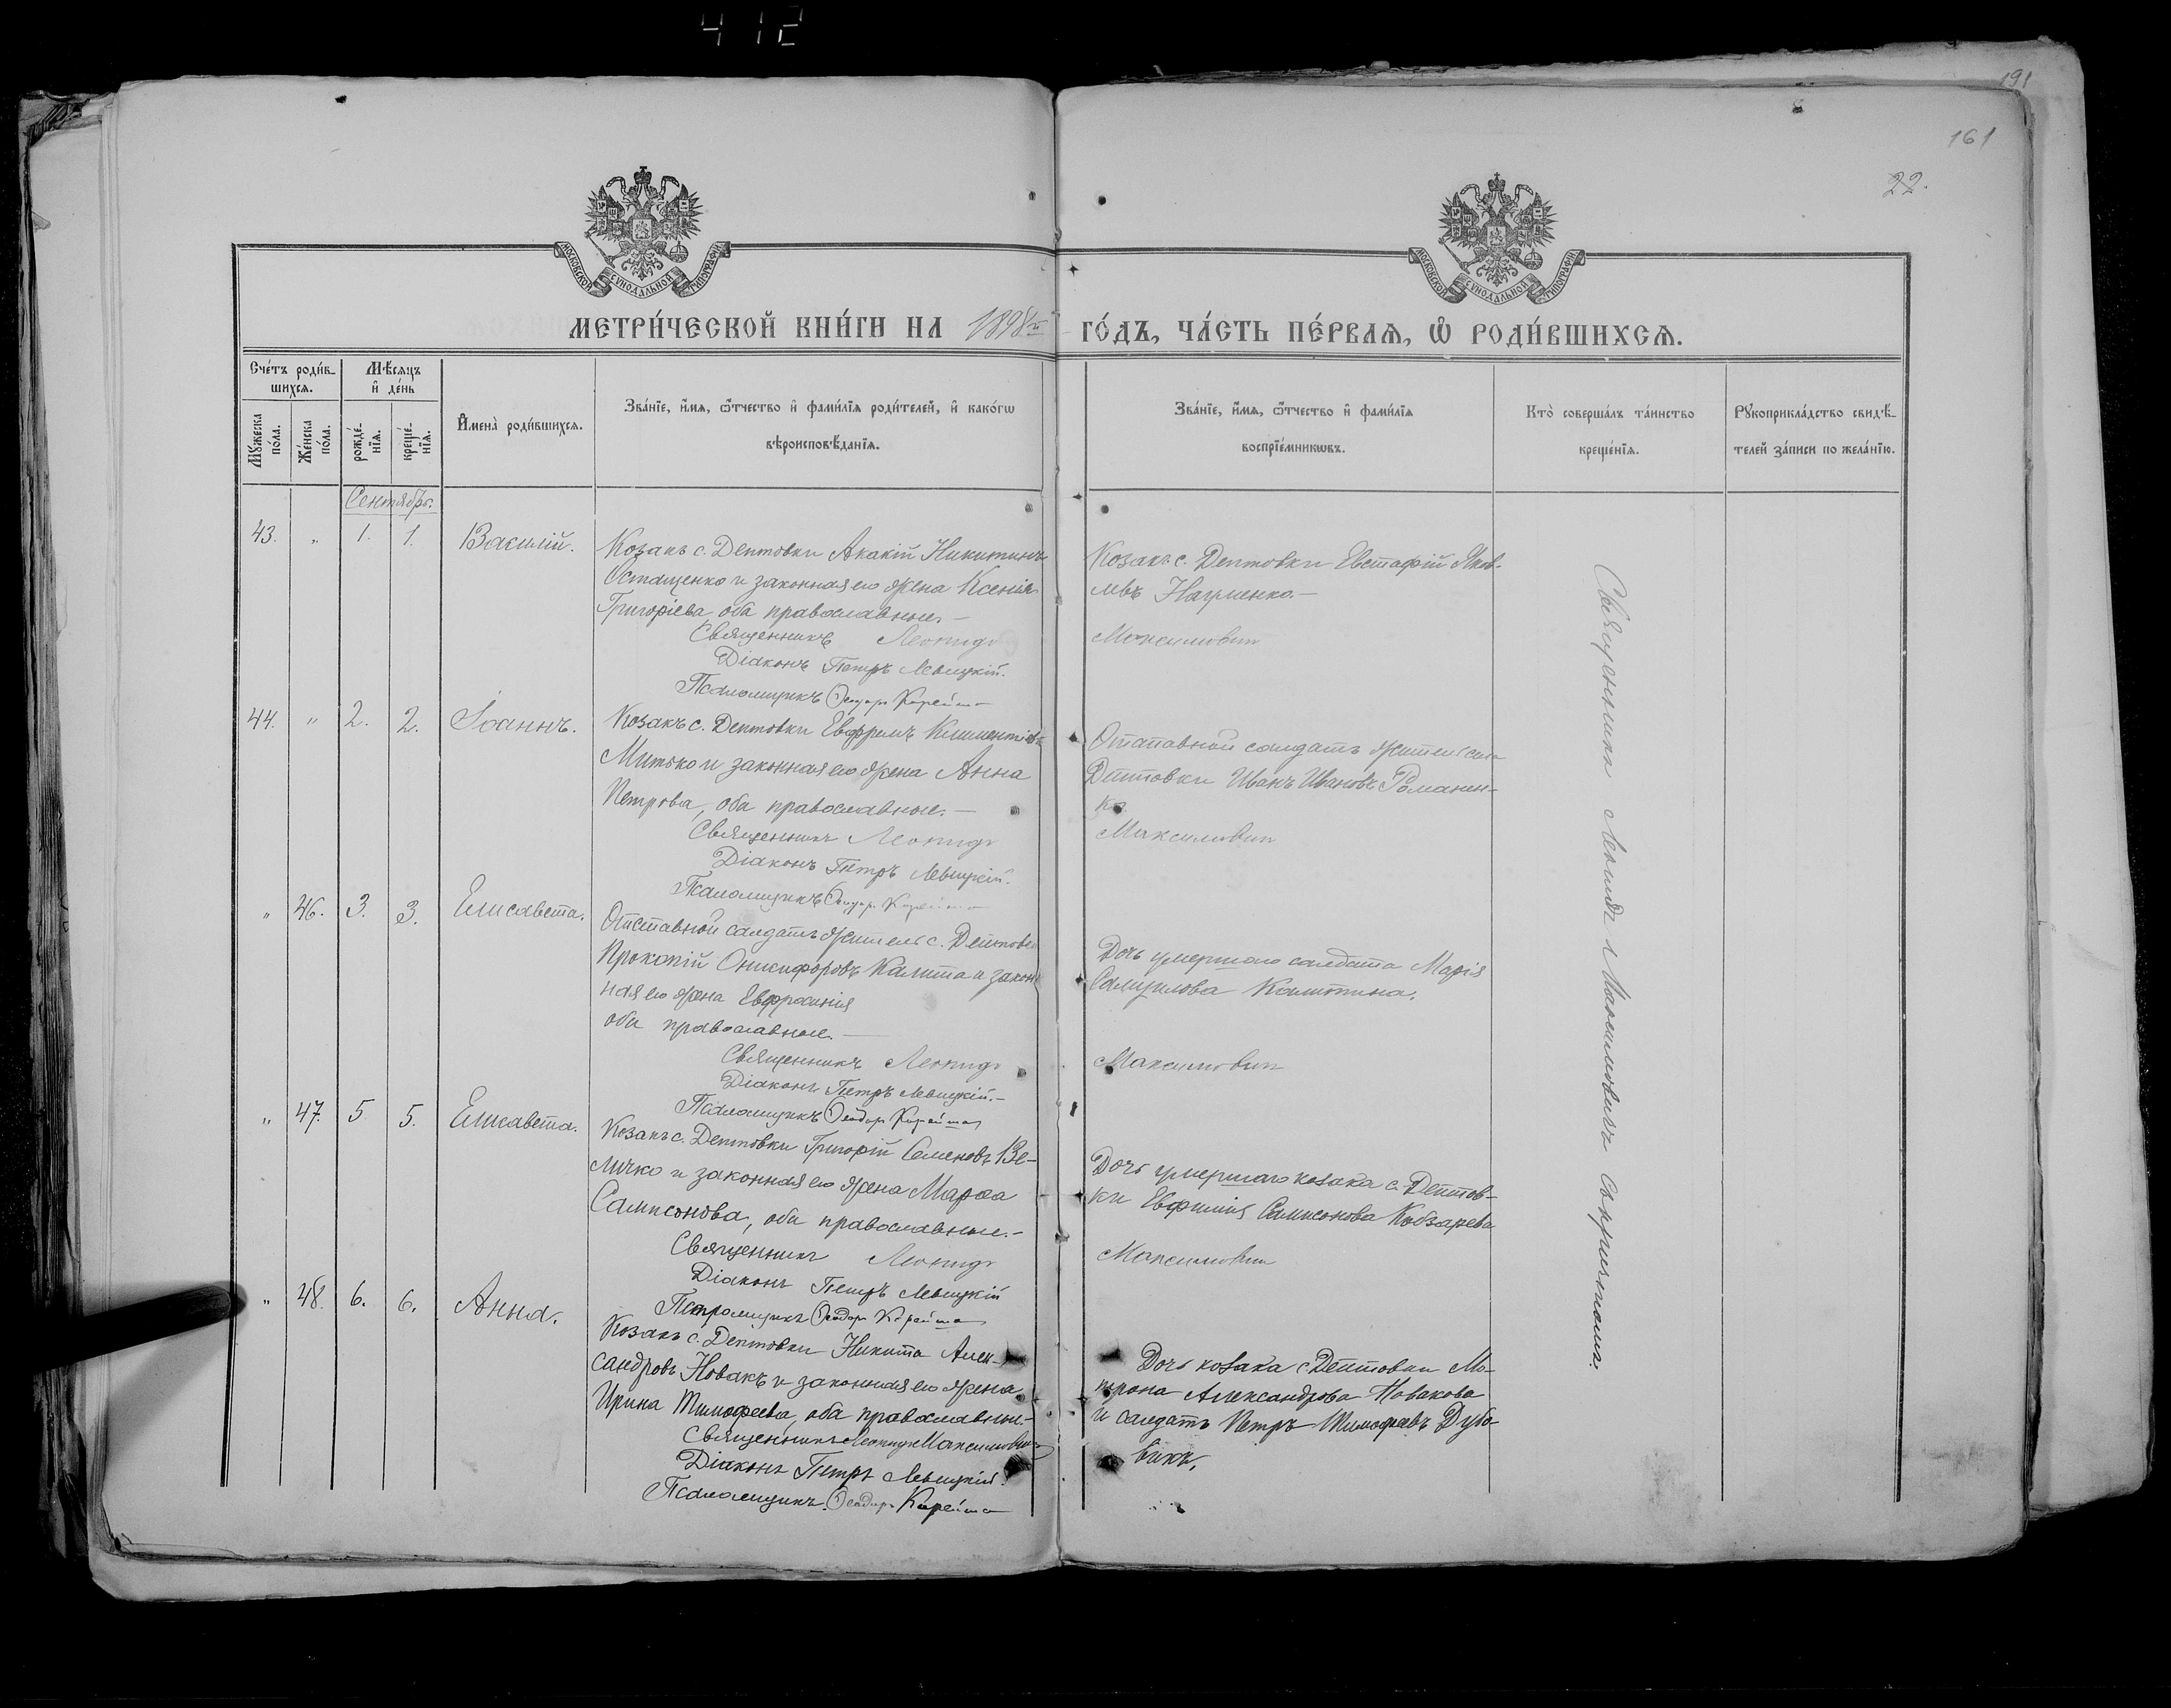 412
191
161
22.
МОСКОВСКОЙ СѴНОДАЛЬНОЙ ТИПОГРАФІИ
МОСКОВСКОЙ СѴНОДАЛЬНОЙ ТИПОГРАФІИ
МЕТРИ́ЧЕСКОЙ КНИ́ГИ НА 1898й ГО́ДЪ, ЧА́СТЬ ПЕ́РВАѦ, Ѽ РОДИ́ВШИХСѦ.
Сче́тъ роди́в-
шихсѧ.
Мѣ́сѧцъ
и҆ де́нь
Мꙋ́жеска
по́ла.
Же́нска
по́ла.
рожде́-
нїѧ.
креще́-
нїѧ.
И҆мена̀ роди́вшихсѧ.
Зва́нїе, и҆́мѧ, ѻ҆́тчество и҆ фами́лїѧ роди́телей, и҆ како́гѡ
вѣроисповѣ́данїѧ.
Зва́нїе, и҆́мѧ, ѻ҆́тчество и҆ фами́лїѧ
воспрїе́мникѡвъ.
Кто̀ соверша́лъ та́инство
креще́нїѧ.
Рꙋкоприкла́дство свидѣ́-
телей за́писи по жела́нїю.
Сентябрь.
43. „ 1. 1. Василій.
Козакъ с. Дептовки Акакій Никитинъ
Остащенко и законная его жена Ксенія
Григоріева оба православные.—
Священникъ Леонидъ Максимовичъ
Діаконъ Петръ Левицкій.
Псаломщикъ Ѳеодоръ
Козакъ с. Дептовки Евстафій Яков-
левъ
44. „ 2. 2. Іоаннъ.
Козакъ с. Дептовки Евфремъ Климентіевъ
Митько и законная его жена Анна
Петрова, оба православные.—
Священникъ Леонидъ Максимовичъ
Діаконъ Петръ Левицкій.
Псаломщикъ Ѳеодоръ
Отставной солдатъ житель села
Дептовки Иванъ Ивановъ Романен-
ко.
„ 46. 3. 3. Елисавета.
Отставной солдатъ житель с. Дептовки
Прокопій Оникифоровъ Калита и закон-
ная его жена Евфросинія
оба православные.—
Священникъ Леонидъ Максимовичъ
Діаконъ Петръ Левицкій.—
Псаломщикъ Ѳеодоръ
Дочь умершаго солдата Марія
Самуилова Калитина.
„ 47. 5. 5. Елисавета.
Козакъ с. Дептовки Григорій Семеновъ Ве-
личко и законная его жена Марѳа
Сампсонова, оба православные.—
Священникъ Леонидъ Максимовичъ
Діаконъ Петръ Левицкій
Псаломщикъ Ѳеодоръ
Дочь умершаго козака с. Дептов-
ки Евфимія Сампсонова Кобзарева
„ 48. 6. 6. Анна.
Козакъ с. Дептовки Никита Алек-
сандровъ Новакъ и законная его жена
Ирина Тимофеева, оба православные.—
Священникъ Леонидъ Максимовичъ
Діаконъ Петръ Левицкій.
Псаломщикъ Ѳеодоръ
Дочь козака с. Дептовки Ма-
трона Александрова Новакова
и солдатъ Петръ Тимофеевъ Дубо-
викъ.
Священникъ Леонидъ Максимовичъ съ